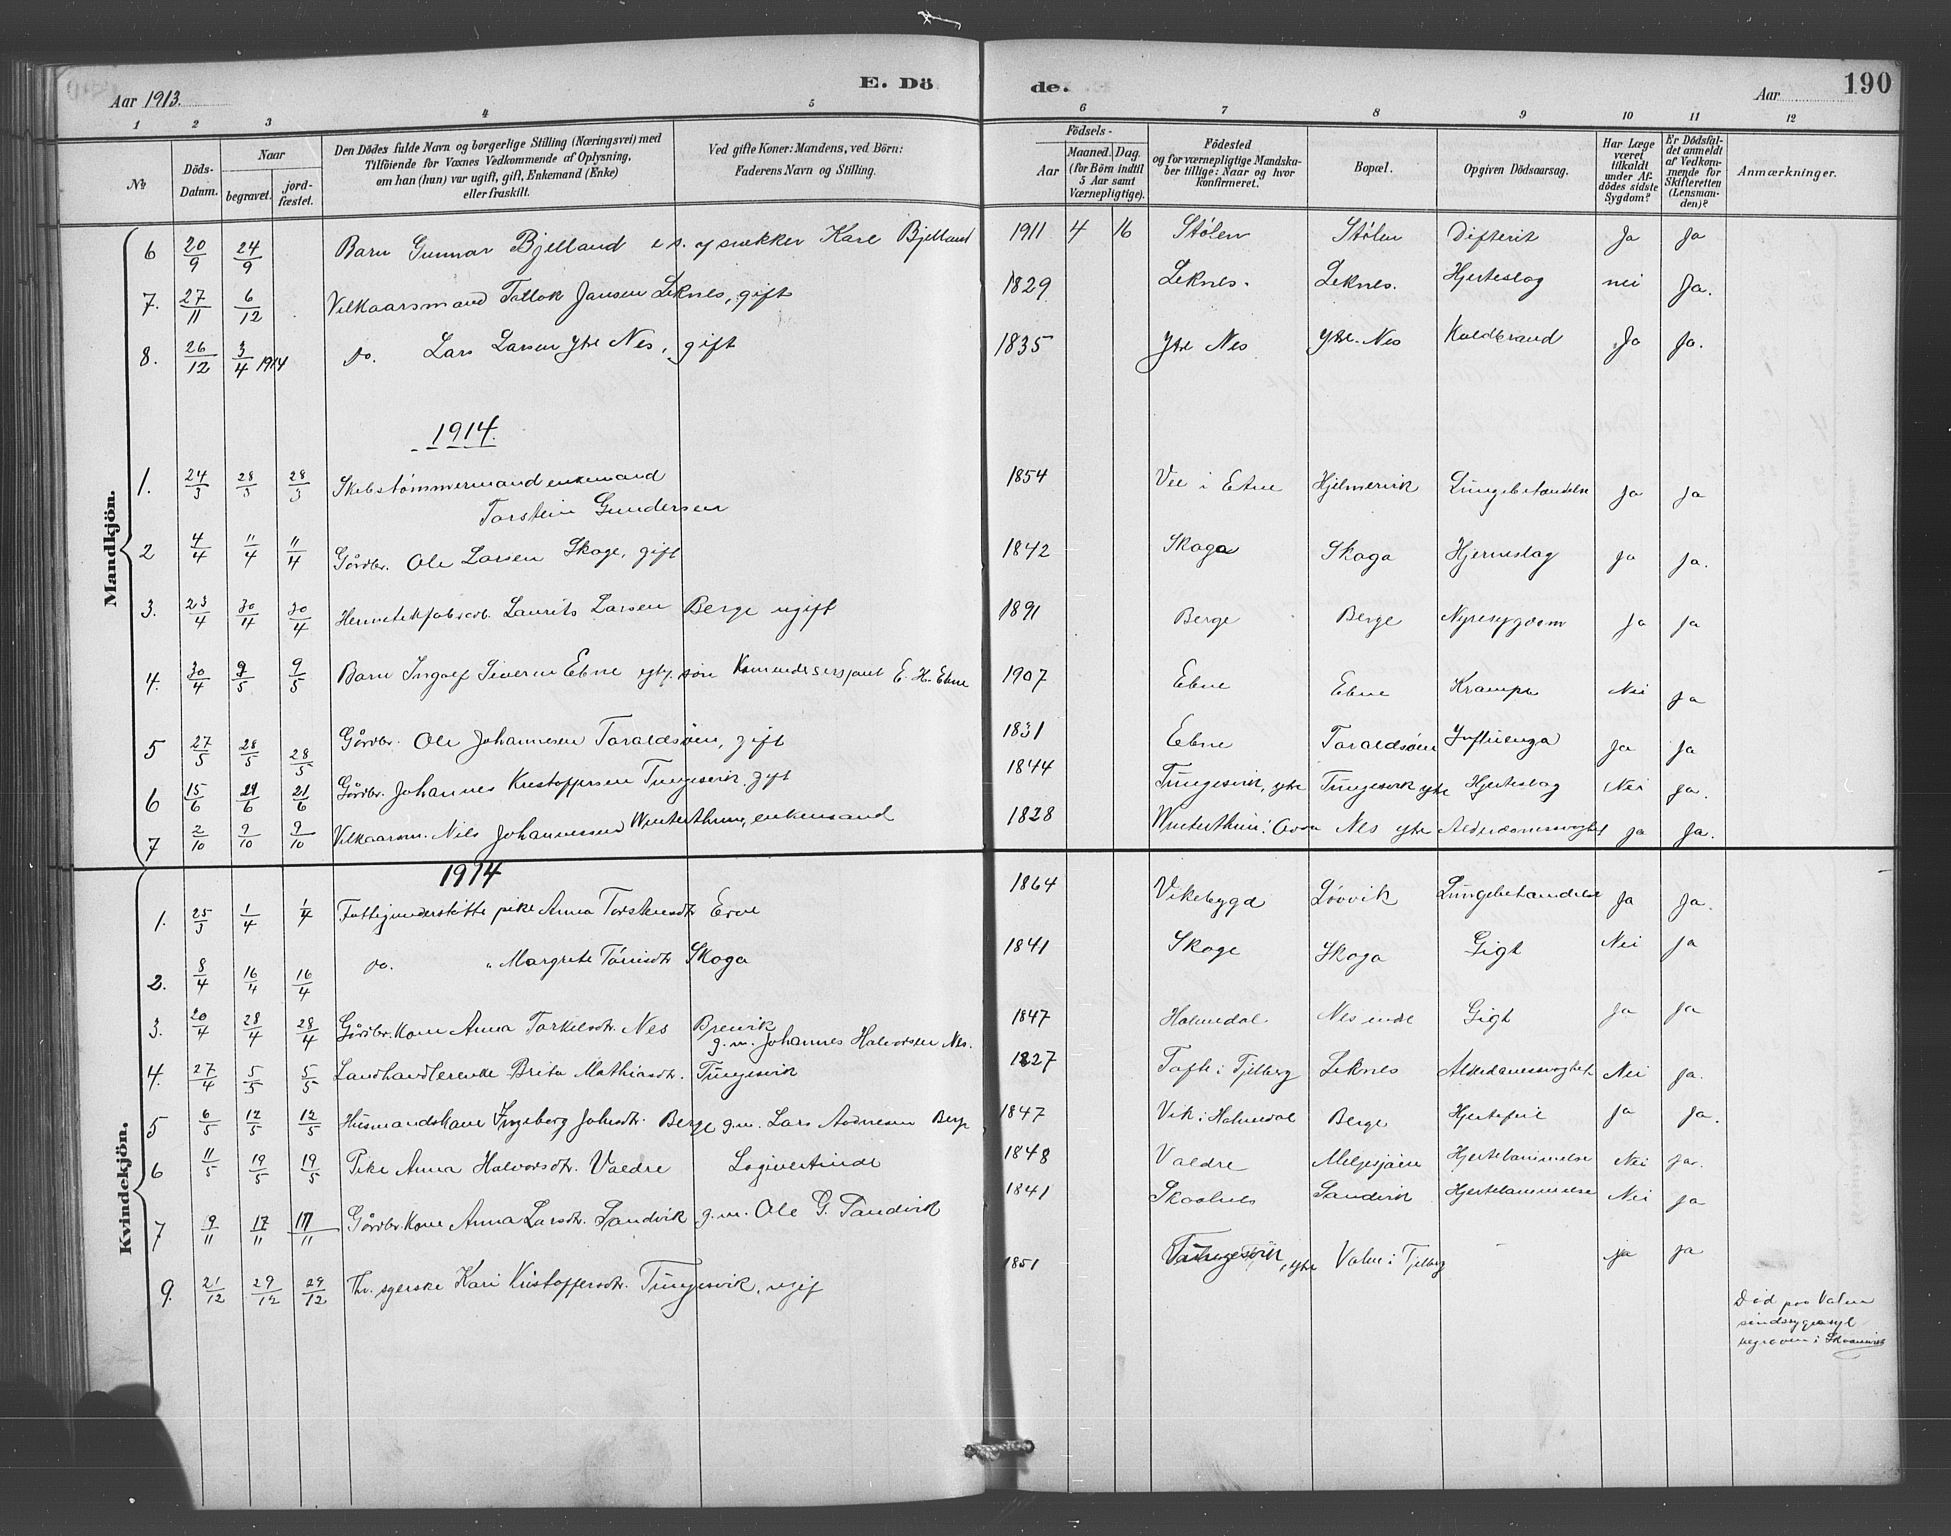 Aar 1913.
E. Dö
de.
Aar
190
1 2 3 4 5 6 7 8 9 10 11 12
№
Döds-Datum.
Naar
begravet.
jord-fæstet.
Den Dödes fulde Navn og borgerlige Stilling (Næringsvei) med
Tilföiende for Voxnes Vedkommende af Oplysning,
om han (hun) var ugift, gift, Enkemand (Enke)
eller fraskilt.
Ved gifte Koner: Mandens, ved Börn:
Faderens Navn og Stilling.
Födsels-
Aar
Maaned. Dag.
(for Börn indtil
5 Aar samt
Værnepligtige).
Födested
og for værnepligtige Mandska-
ber tillige: Naar og hvor
konfirmeret.
Bopæl.
Opgiven Dödsaarsag.
Har Læge
været
tilkaldt
under Af-
dödes sidste
Sygdom?
Er Dödsfal-
det anmeldt
af Vedkom-
mende for
Skifteretten
(Lensman-
den)?
Anmærkninger.
Mandkjön.
6 20/9 24/9 Barn Gunnar Bjelland e s. af snekker Karl Bjelland 1911 4 16 Stølen Stølen Difterit Ja Ja
7. 27/11 6/12 Vilkaarsmand Tollok Jansen Leknes, gift 1829 Leknes. Leknes. Hjerteslag nei Ja.
8. 26/12 3/4 1914 do. Lars Larsen Ytre Nes, gift 1835 Ytre Nes Ytre Nes Koldbrand Ja Ja.
1914.
1. 24/3 28/3 28/3 Skibstømmermand enkemand 1854 Vee i Etne Hjelmervik Lungebetændelse Ja Ja
Torstein Gundersen
2 4/4 11/4 11/4 Gårdbr. Ole Larsen Skoge, gift 1842 Skoga Skoga Hjerneslag Ja Ja.
3. 23/4 30/4 30/4 Hermetikfabrarb. Laurits Larsen Berge ugift 1891 Berge Berge Nyresygdom Ja Ja
4. 30/4 9/5 9/5 Barn Ingolf Severin Ebne søn Komandersersjant E. H. Ebne 1907 Ebne Ebne Krampe Nei Ja
5 27/5 28/5 28/5 Gårdbr. Ole Johannesen Taraldsøien, gift 1831 Ebne Taraldsøien Influenza Ja Ja
6 15/6 21/6 21/6 Gårdbr. Johannes Kristoffersen Tungesvik, gift 1844 Tungesvik, ytre Tungesvik ytre Hjerteslag Nei Ja.
7 2/10 9/10 9/10 Vilkaarsm. Nils Johannessen Winterthun, enkemand 1828 Winterthun: Nes ytre Alderdomssvaghet Ja Ja.
Kvindekjön.
1914
1. 25/3 1/4 1/4 Fattigunderstøtte pike Anna Torsteinsdtr. 1864 Vikebygd Løvvik Lungebetændelse Ja Ja.
2. 8/4 16/4 16/4 do. " Margrete Tønisdtr Skoga 1841 Skoge Skoga Gigt Nei Ja
3. 20/4 28/4 28/4 Gårdbr. Kone Anna Torkelsdtr. Nes Breivik 1847 Holmedal Nes indre Gigt Ja Ja
g.m. Johannes Halvorsen Nes.
4. 27/4 5/5 5/5 Landhandlerenke Brita Mathiasdtr. Tungesvik 1827 Tofte i Fjelberg Leknes Alderdomssvaghet Nei Ja.
5 6/5 12/5 12/5 Husmandskone Ingeborg Johsdtr. Berge g.m. Lars Andresen Berge 1847 Vik i Holmedal Berge Hjertefeil Ja Ja.
6 11/5 19/5 19/5 Pike Anna Halvorsdtr. Valdre Logivertinde 1848 Valdre Hjertelammelse Nei Ja.
7 9/11 17/11 17/11 Gårdbr. Kone Anna Larsdtr. Sandvik g.m. Ole G. Sandvik 1841 Skaalnes Sandvik Hjertelammelse Nei Ja
9. 21/12 29/12 29/12 Kari Kristoffersdtr. Tungesvik, ugift 1851 Tungesvik, ytre Valen i Fjelberg - Ja Ja
Død paa Valen
sindsygeasyl
begraven i Skaanevik